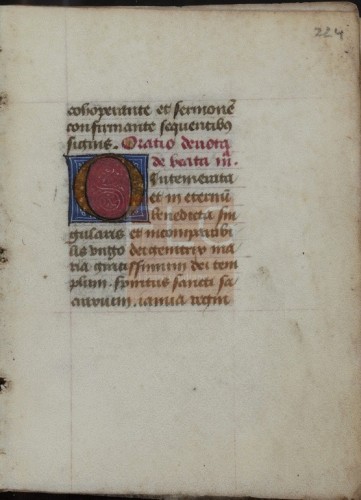 224
cohoperante et sermonē
confirmante sequentibꝰ
signis. Oratio deuota
de beata m̄.
O Intemerata
et in eternū
benedicta sin
gularis et incomparabi
lis virgo dei genitrix ma
ria gratissimum dei tem
plum. spiritus sancti sa
crarium. ianua regni